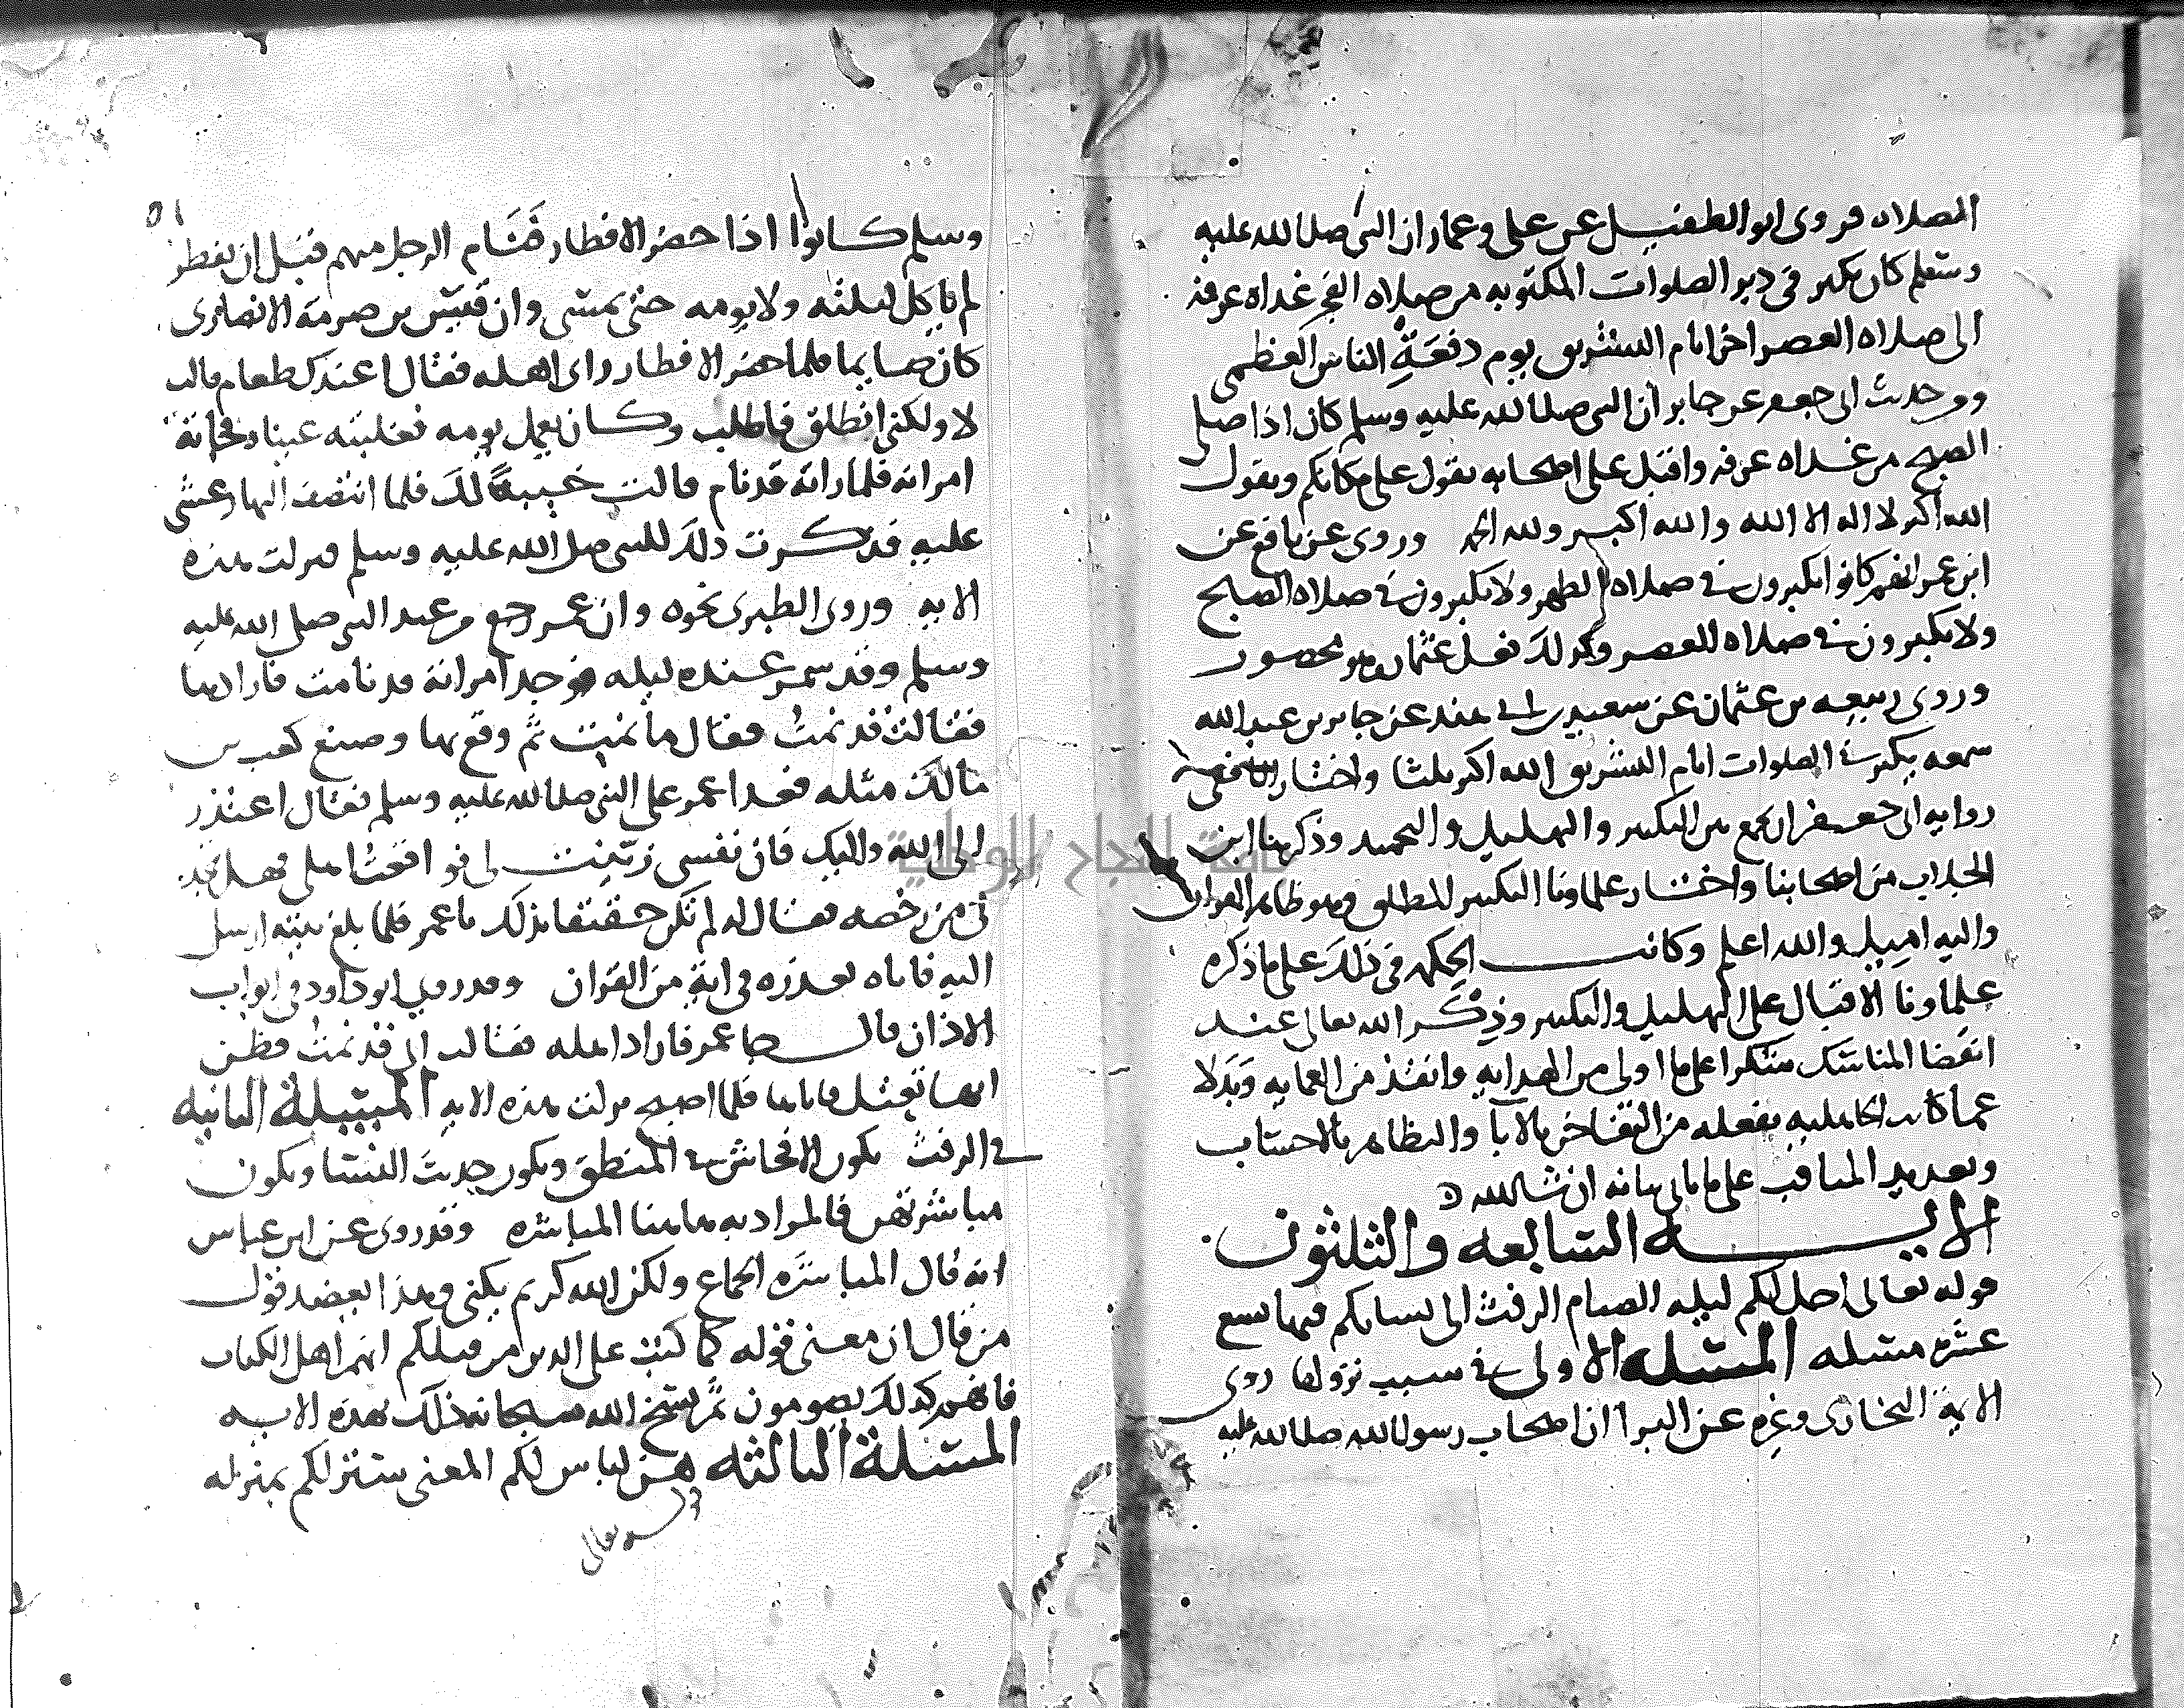 المصلاه فروى ابو الطفيل عن على وعمار ان النبى صلى الله عليه
وسلم كان يكبر فى دبر الصلوات المكتوبه من صلاه الفجر غداه عرفه
الى صلاه العصر اخر ايام التشريق يوم دفعة الناس العظمى
وفى حديث ابى جعفر عن جابر ان النبى صلى الله عليه وسلم كان اذا صلى
الصبح من غداه عرفه واقبل على اصحابه يقول على مكانكم ويقول
الله اكبر لا اله الا الله والله اكبر ولله الحمد وروى عن نافع عن
ابن عمر انهم كانوا يكبرون فى صلاه الظهر ولا يكبرون فى صلاه الصبح
ولا يكبرون فى صلاه العصر وكذلك فعل عثمان وهو محصور
وروى ربيعه بن عثمان عن سعيد بن ابى هند عن جابر بن عبد الله
سمعه يكبر فى الصلوات ايام التشريق الله اكبر ثلثا واختار الشافعى
روايه ابى جعفر ان يجمع بين التكبير والتهليل والتحميد وذكرها ابن
الجلاب من اصحابنا واختار علماونا التكبير المطلق وهو ظاهر القران
واليه اميل والله اعلم وكانت الحكمه فى ذلك على ما ذكره
علماونا الاقبال على التهليل والتكبير وذكر الله تعالى عند
انقضا المناسك شكرا على ما اولى من الهدايه وانقذ من العمايه وبدلا
عما كانت الجاهليه تفعله من التفاخر بالابآ والتظاهر بالاحساب
وتعديد المناقب على ما ياتى بيانه ان شا الله
الايـه السابعه والثلثون
قوله تعالى احل لكم ليله الصيام الرفث الى نسايكم فيها تسع
عشره مسئله المسئله الاولى فى سبب نزولها روى
الايه البخارى وغيره عن البرآ ان اصحاب رسول الله صلى الله عليه
٥١
وسلم كانوا اذا حضر الافطار فنام الرجل منهم قبل ان يفطر
لم ياكل ليلته ولا يومه حتى يمسى وان قيس بن صرمة الانصارى
كان صايما فلما حضر الافطار راى اهله فقال اعندك طعام قالت
لا ولكنى انطلق فاطلب وكان يعمل يومه فغلبته عيناه فجاته
امراته فلما راته قد نام قالت خيبة لك فلما انتصف النهار غشى
عليه فذكرت ذلك للنبى صلى الله عليه وسلم فنزلت هذه
الايه وروى الطبرى نحوه وان عمر رجع من عند النبى صلى الله عليه
وسلم وقد سمر عنده ليله فوجد امراته قد نامت فارادها
فقالت قد نمت فقال ما نمت ثم وقع بها وصنع كعب بن
مالك مثله فغدا عمر على النبى صلى الله عليه وسلم فقال اعتذر
الى الله واليك فان نفسى زينت لى فواقعت اهلى فهل تجد
لى من رخصه فقال له لم تكن حقيقا بذلك يا عمر فلما بلغ بيته ارسل
اليه فاتاه بعذره فى اية من القران وقد روى ابو داود فى ابواب
الاذان قال جا عمر فاراد اهله فقالت انى قد نمت فظن
انها تعتل فاتاها فلما اصبح نزلت هذه الايه المسئلة الثانيه
فى الرفث يكون الافحاش فى المنطق ويكون حديث النسا ويكون
مباشرتهن فالمراد به هاهنا المباشره وقد روى عن ابن عباس
انه قال المباشره الجماع ولكن الله كريم يكنى وهذا يعضد قول
من قال ان معنى قوله كما كتب على الذين من قبلكم انهم اهل الكتاب
فانهم كذلك يصومون ثم نسخ الله سبحانه ذلك بهذه الايه
المسئلة الثالثه هن لباس لكم المعنى ستر لكم بمنزله
قوله تعالى